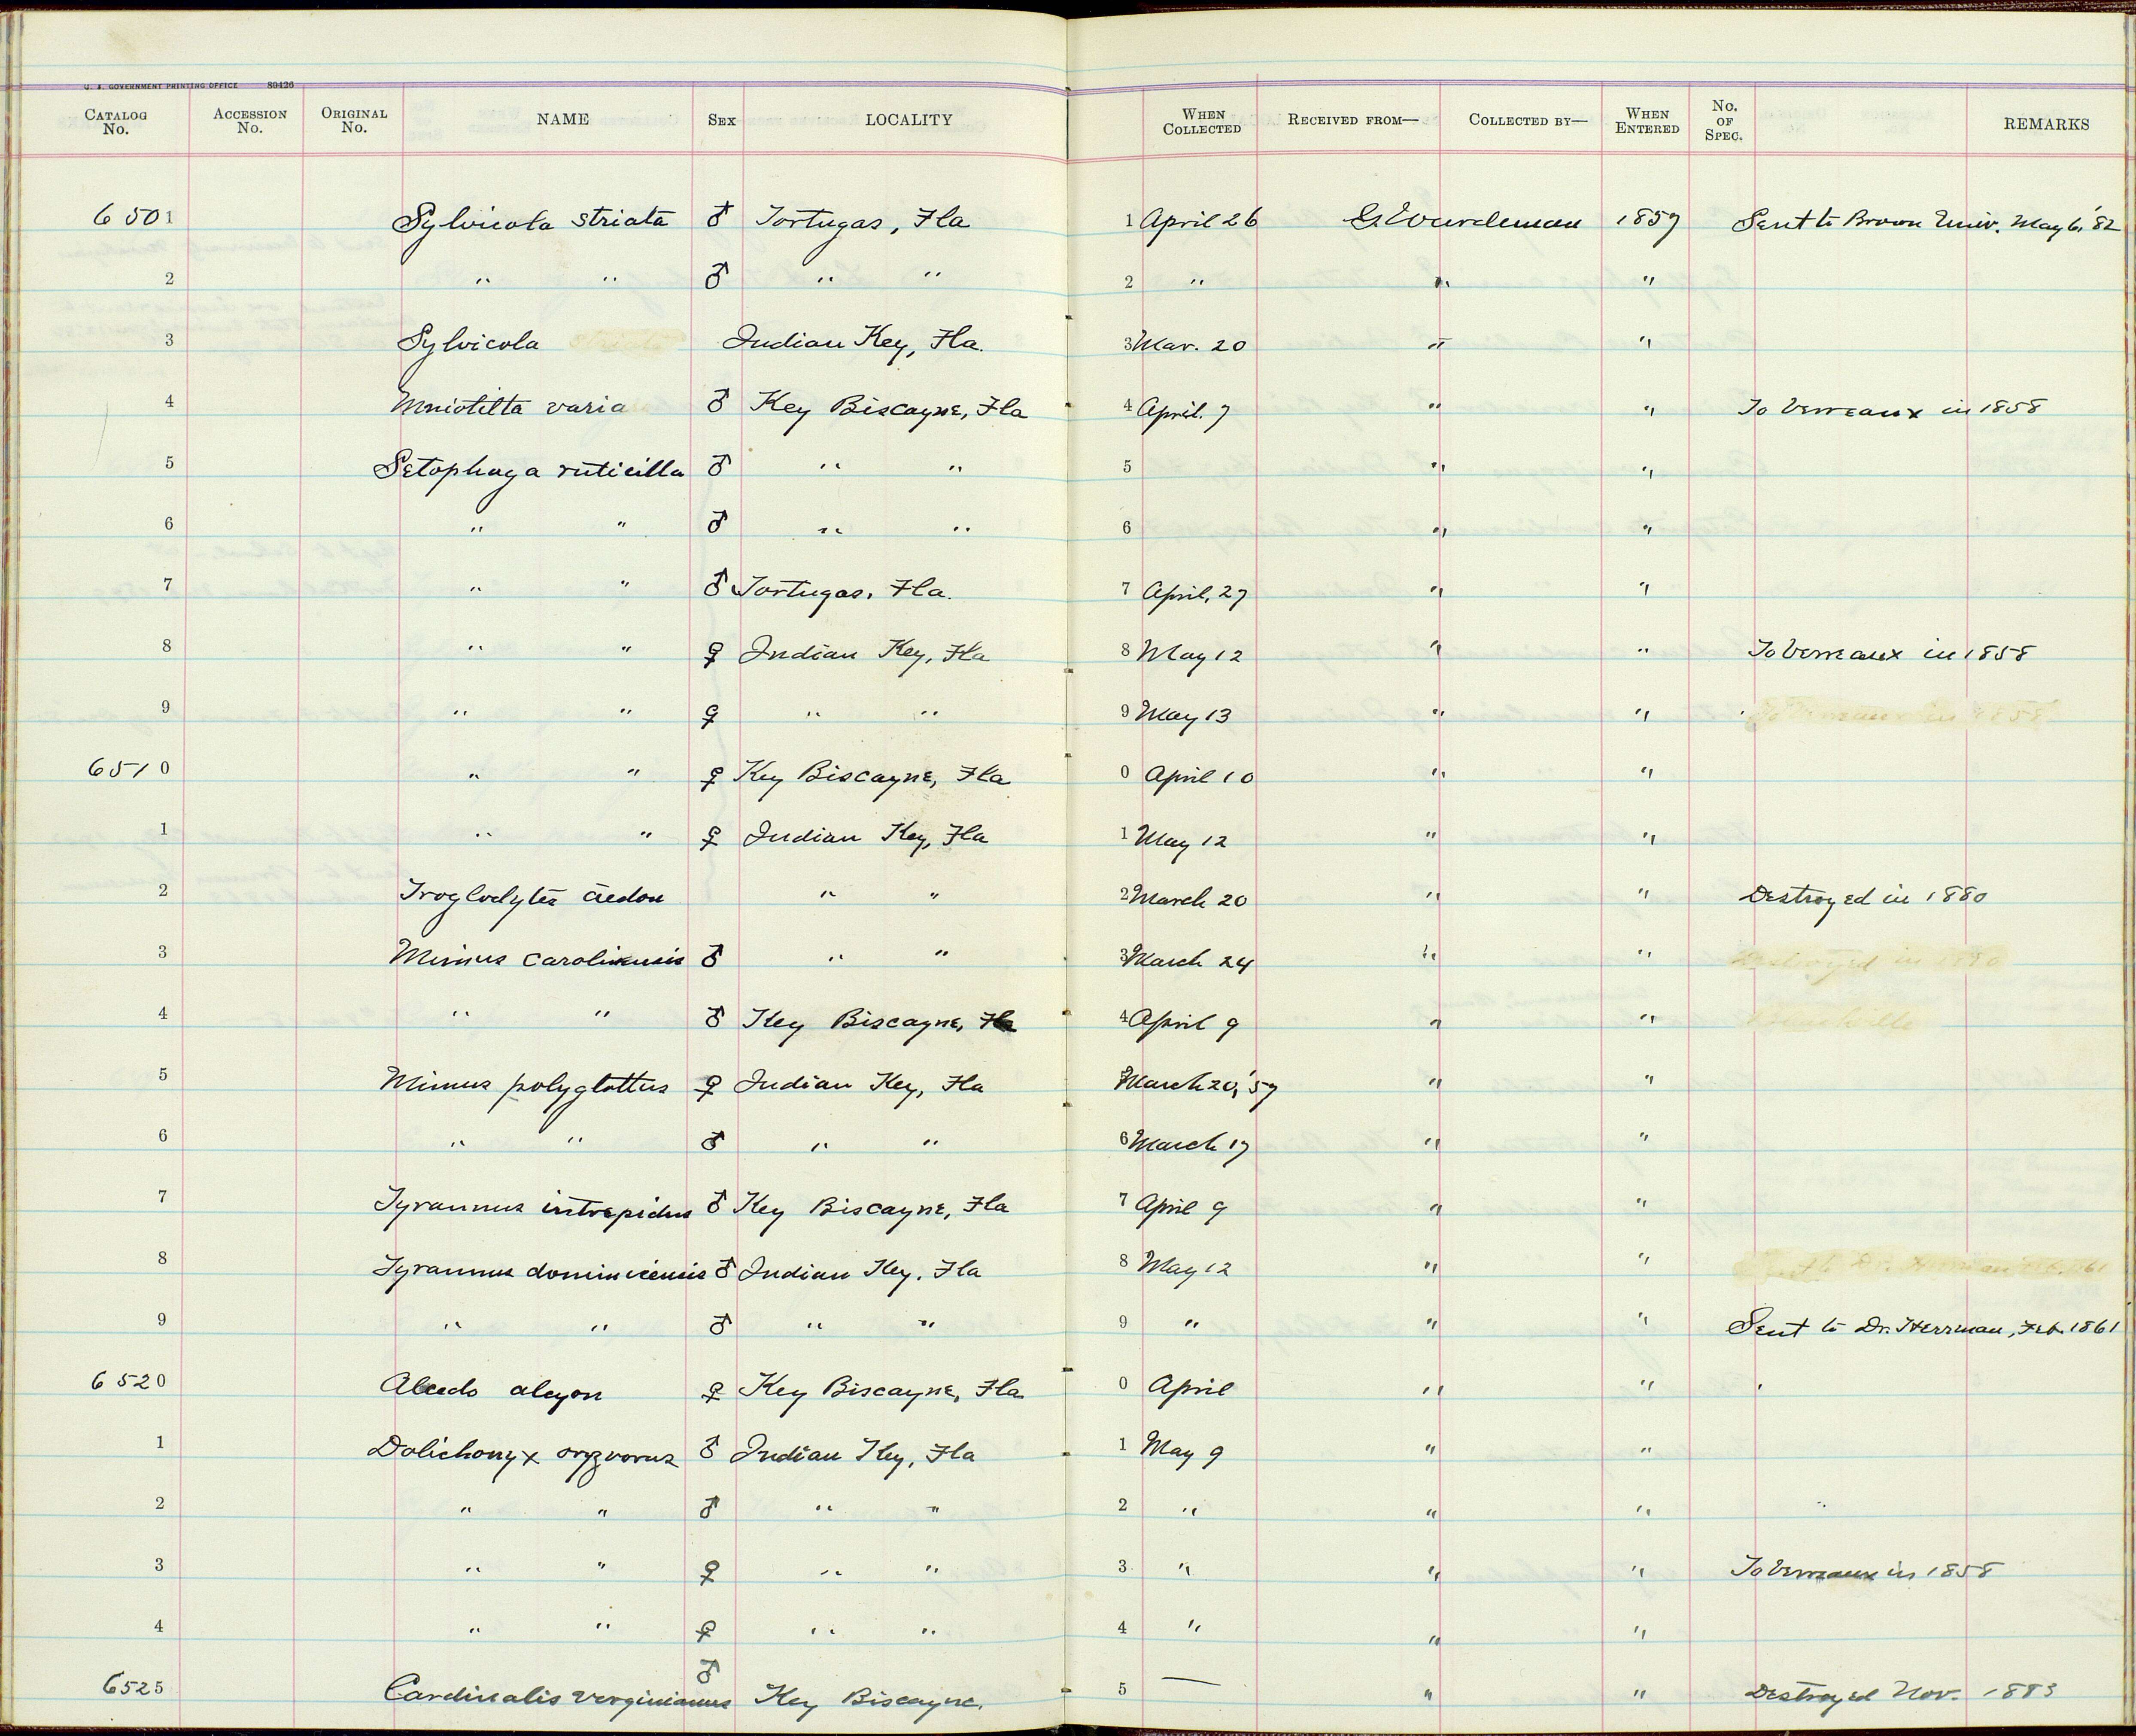 U. S. GOVERNMENT PRINTING OFFICE 89426
CATALOG No. ACCESSION No. ORIGINAL No. NAME SEX LOCALITY WHEN COLLECTED RECEIVED FROM— COLLECTED BY— WHEN ENTERED No. OF SPEC. REMARKS
6501 Sylvicola striata ♂ Tortugas, Fla 1 April 26 G. Wurdeman 1857 Sent to Brown Univ. May 6, '82
2 " " ♂ " " 2 " " "
3 Sylvicola Indian Key, Fla. 3 Mar. 20 " "
4 Mniotilta varia ♂ Key Biscayne, Fla 4 April. 7 " " To Verreaux in 1858
5 Setophaga ruticilla ♂ " " 5 " "
6 " " ♂ " " 6 " "
7 " " ♂ Tortugas, Fla. 7 April, 27 " "
8 " " ♀ Indian Key, Fla 8 May 12 " " To Verreaux in 1858
9 " " ♀ " " 9 May 13 " "
6510 " " ♀ Key Biscayne, Fla 0 April 10 " "
1 " " ♀ Indian Key, Fla 1 May 12 " "
2 Troglodytes aedon " " 2 March 20 " " Destroyed in 1880
3 Mimus carolinensis ♂ " " 3 March 24 " " Destroyed in 1880
4 " " ♂ Key Biscayne, Fla 4 April 9 " "
5 Mimus polyglottus ♀ Indian Key, Fla March 20, '57 " "
6 " " ♂ " " 6 March 17 " "
7 Tyrannus intrepidus ♂ Key Biscayne, Fla 7 April 9 " "
8 Tyrannus dominicensis ♂ Indian Key, Fla 8 May 12 " "
9 " " ♂ " " 9 " " " Sent to Dr. Herrman, Feb. 1861
6520 Alcedo alcyon ♀ Key Biscayne, Fla 0 April " "
1 Dolichonyx oryzvorus ♂ Indian Key, Fla 1 May 9 " "
2 " " ♂ " " 2 " " "
3 " " ♀ " " 3 " " " To Verreaux in 1858
4 " " ♀ " " 4 " " "
6525 Cardinalis verginianus ♂ Key Biscayne, 5 — " " Destroyed Nov. 1883